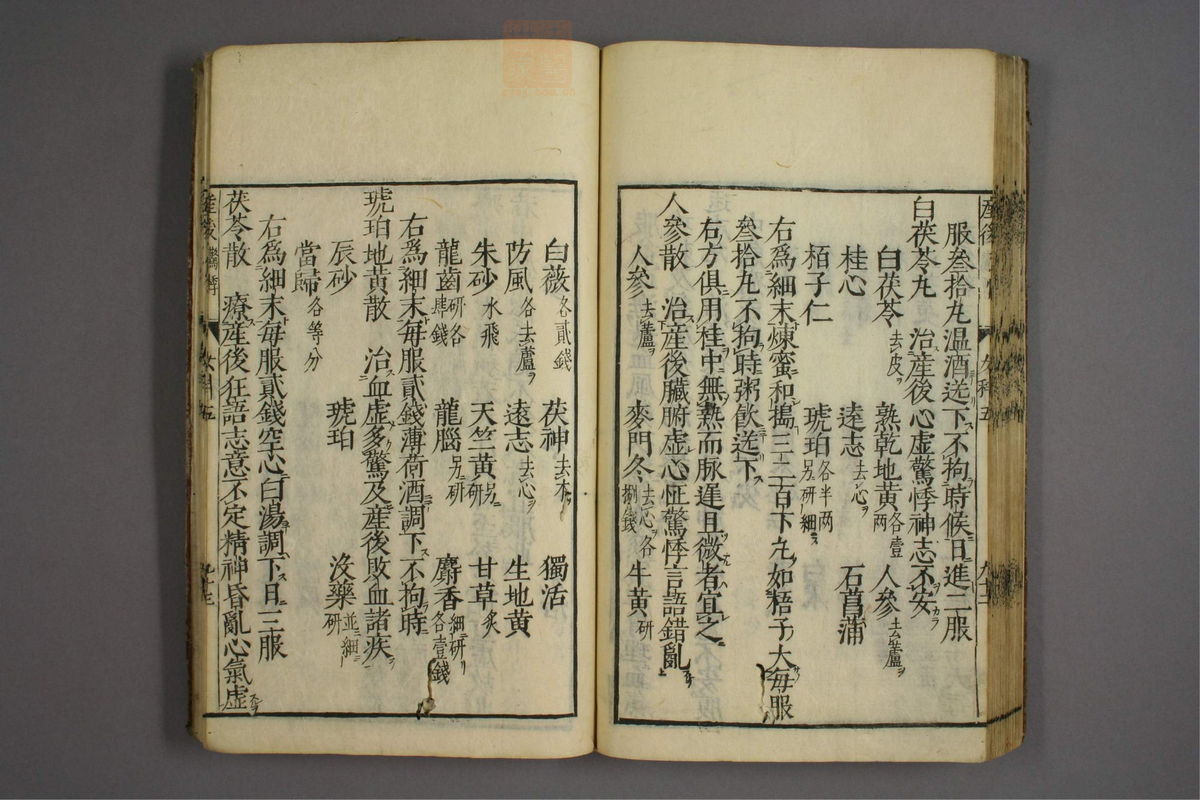 服叁拾丸温酒送下不拘時候日進二服
白茯苓丸　治産後心虚驚悸神志不安
白茯苓去皮　熟乾地黄各壹兩　人參去蘆
桂心　遠志去心　石菖蒲
栢子仁　琥珀各半兩另研細
右爲細末煉蜜和搗三二百下丸如梧子大毎服
叁拾丸不拘時粥飲送下
右方俱用桂中無熱而脉遲且微者宜之
人參散　治産後臓腑虚心怔驚悸言語錯亂
人參去蘆　麥門冬去心各捌錢　牛黄研
白薇各貳錢　茯神去木　獨活
防風各去蘆　遠志去心　生地黄
朱砂水飛　天竺黄另研　甘草炙
龍齒研各肆錢　龍腦另研　麝香細研各壹錢
右爲細末毎服貳錢薄荷酒調下不拘時
琥珀地黄散　治血虚多驚及産後敗血諸疾
辰砂　琥珀　没藥並細研
當歸各等分
右爲細末毎服貳錢空心白湯調下日三服
茯苓散　療産後狂語志意不定精神昏亂心氣虚
産後驚悸　女科五